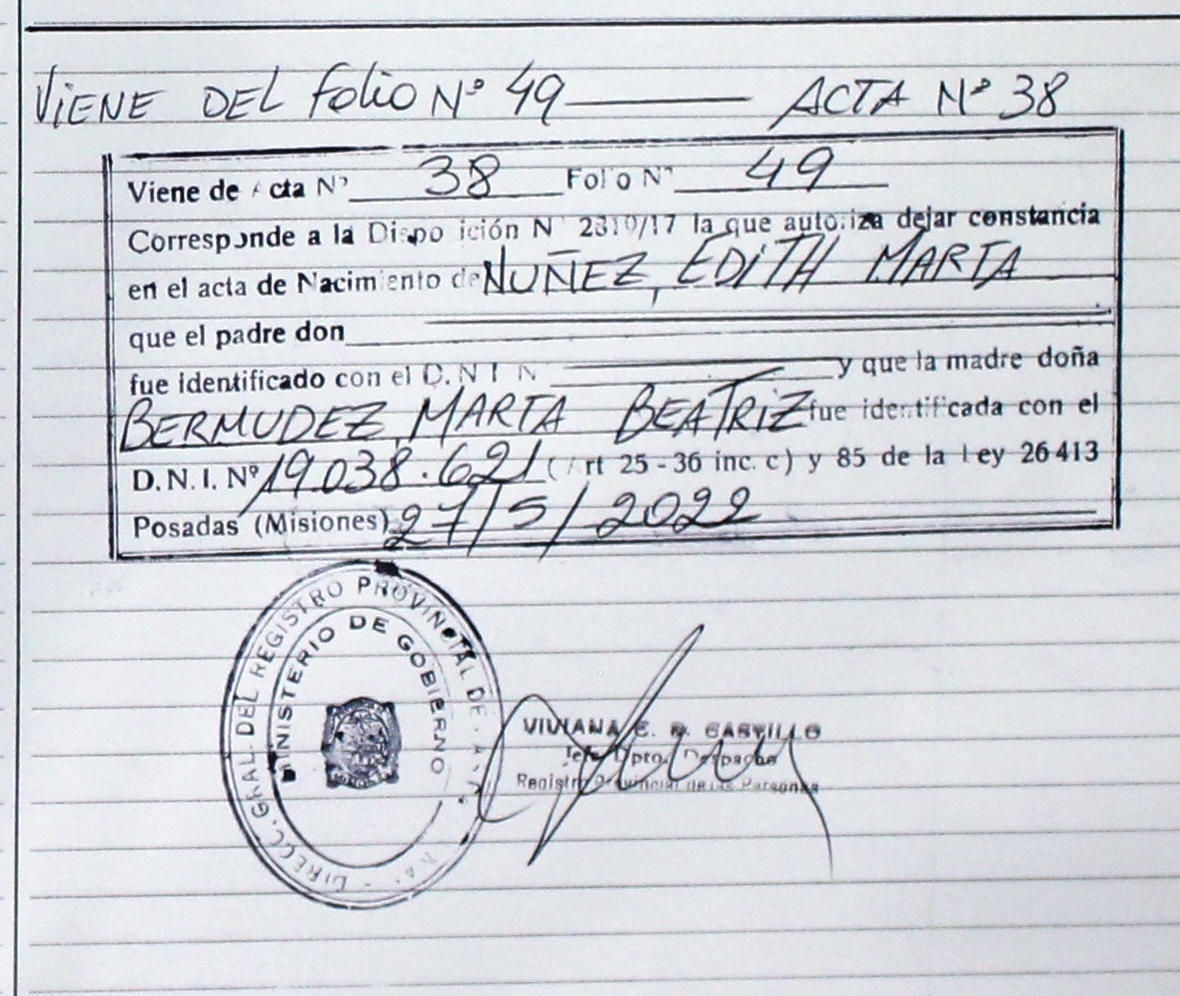 VIENE DEL FOLIO Nº 49 ACTA Nº 38
Viene de Acta Nº 38 Folio Nº 49
Corresponde a la Disposición Nº 2310/17 la que autoriza dejar constancia
en el acta de Nacimiento de NUÑEZ, EDITH MARTA
que el padre don
fue identificado con el D.N.I. Nº y que la madre doña
BERMUDEZ, MARTA BEATRIZ fue identificada con el
D.N.I. Nº 19.038.621 (Art 25-36 inc. c) y 85 de la Ley 26413
Posadas (Misiones) 27/5/2022
DIRECC. GRAL. DEL REGISTRO PROVINCIAL DE
MINISTERIO DE GOBIERNO
VIVIANA E. R. CASTILLO
Jefe Dpto. Despacho
Registro Provincial de las Personas